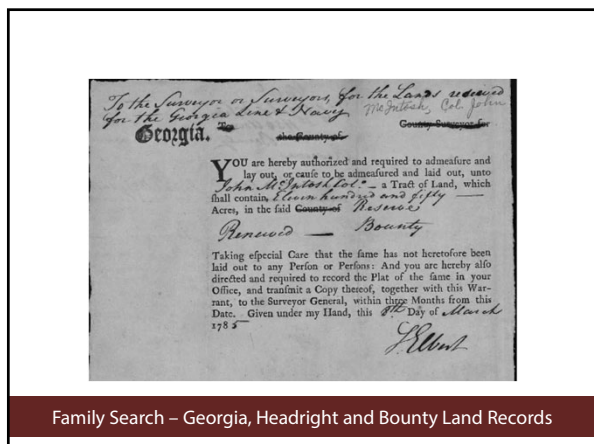 To the Surveyor or Surveyors, for the Lands reserved
for the Georgia Line & Navy
McIntosh, Col. John
Georgia. To the County of County Surveyor for
YOU are hereby authorized and required to admeaſure and
lay out, or cauſe to be admeaſured and laid out, unto
John McIntosh Colo. — a Tract of Land, which
ſhall contain, Eleven hundred and fifty —
Acres, in the ſaid County of Reserve
Renewed — Bounty
Taking eſpecial Care that the ſame has not heretofore been
laid out to any Perſon or Perſons: And you are hereby alſo
directed and required to record the Plat of the ſame in your
Office, and tranſmit a Copy thereof, together with this War-
rant, to the Surveyor General, within three Months from this
Date. Given under my Hand, this 8th Day of March
1785
S Elbert
Family Search – Georgia, Headright and Bounty Land Records